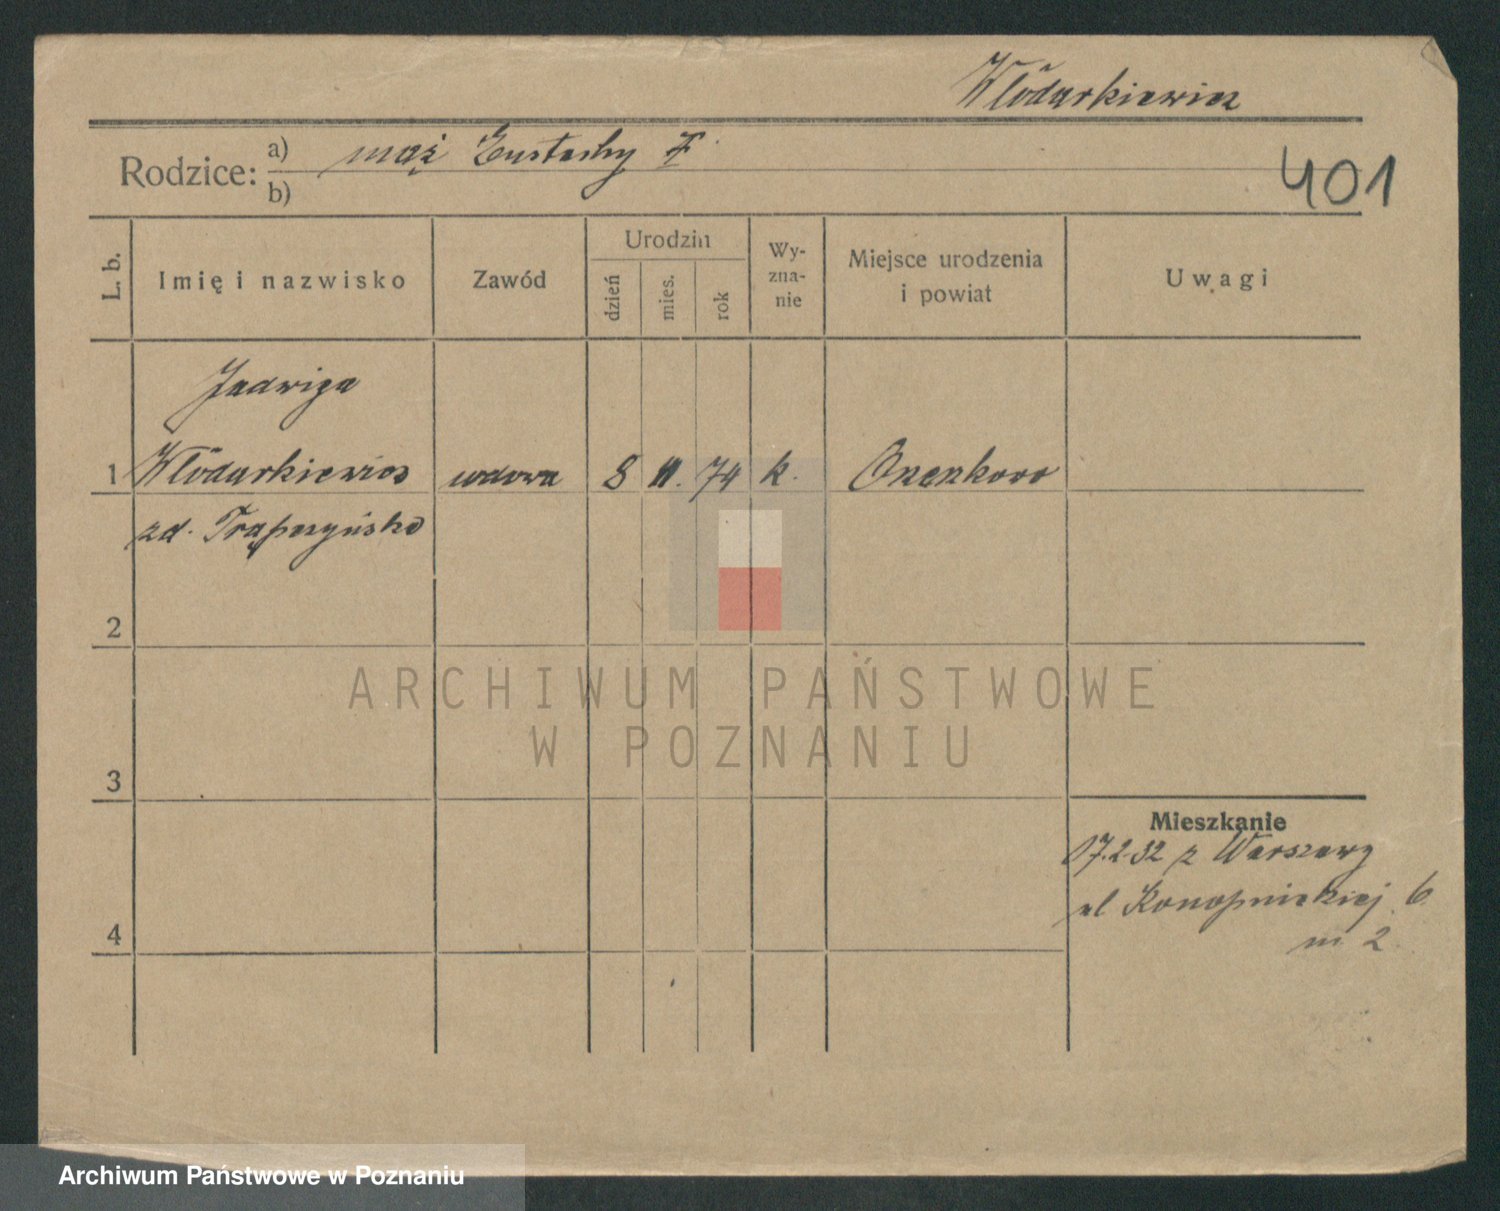 Włódarkiewicz
Rodzice: a) mąż Eustachy
b)
401
L. b.
Imię i nazwisko
Zawód
Urodzin
dzień
mies.
rok
Wy-
zna-
nie
Miejsce urodzenia
i powiat
Uwagi
Jadwiga
1 Włódarkiewicz wdowa 8 11. 74 k.
zd. Trąpczyńska
2
3
4
Mieszkanie
17.2.32 z Warszawy
ul Konopnickiej 6
m 2
ARCHIWUM PAŃSTWOWE
W POZNANIU
Archiwum Państwowe w Poznaniu